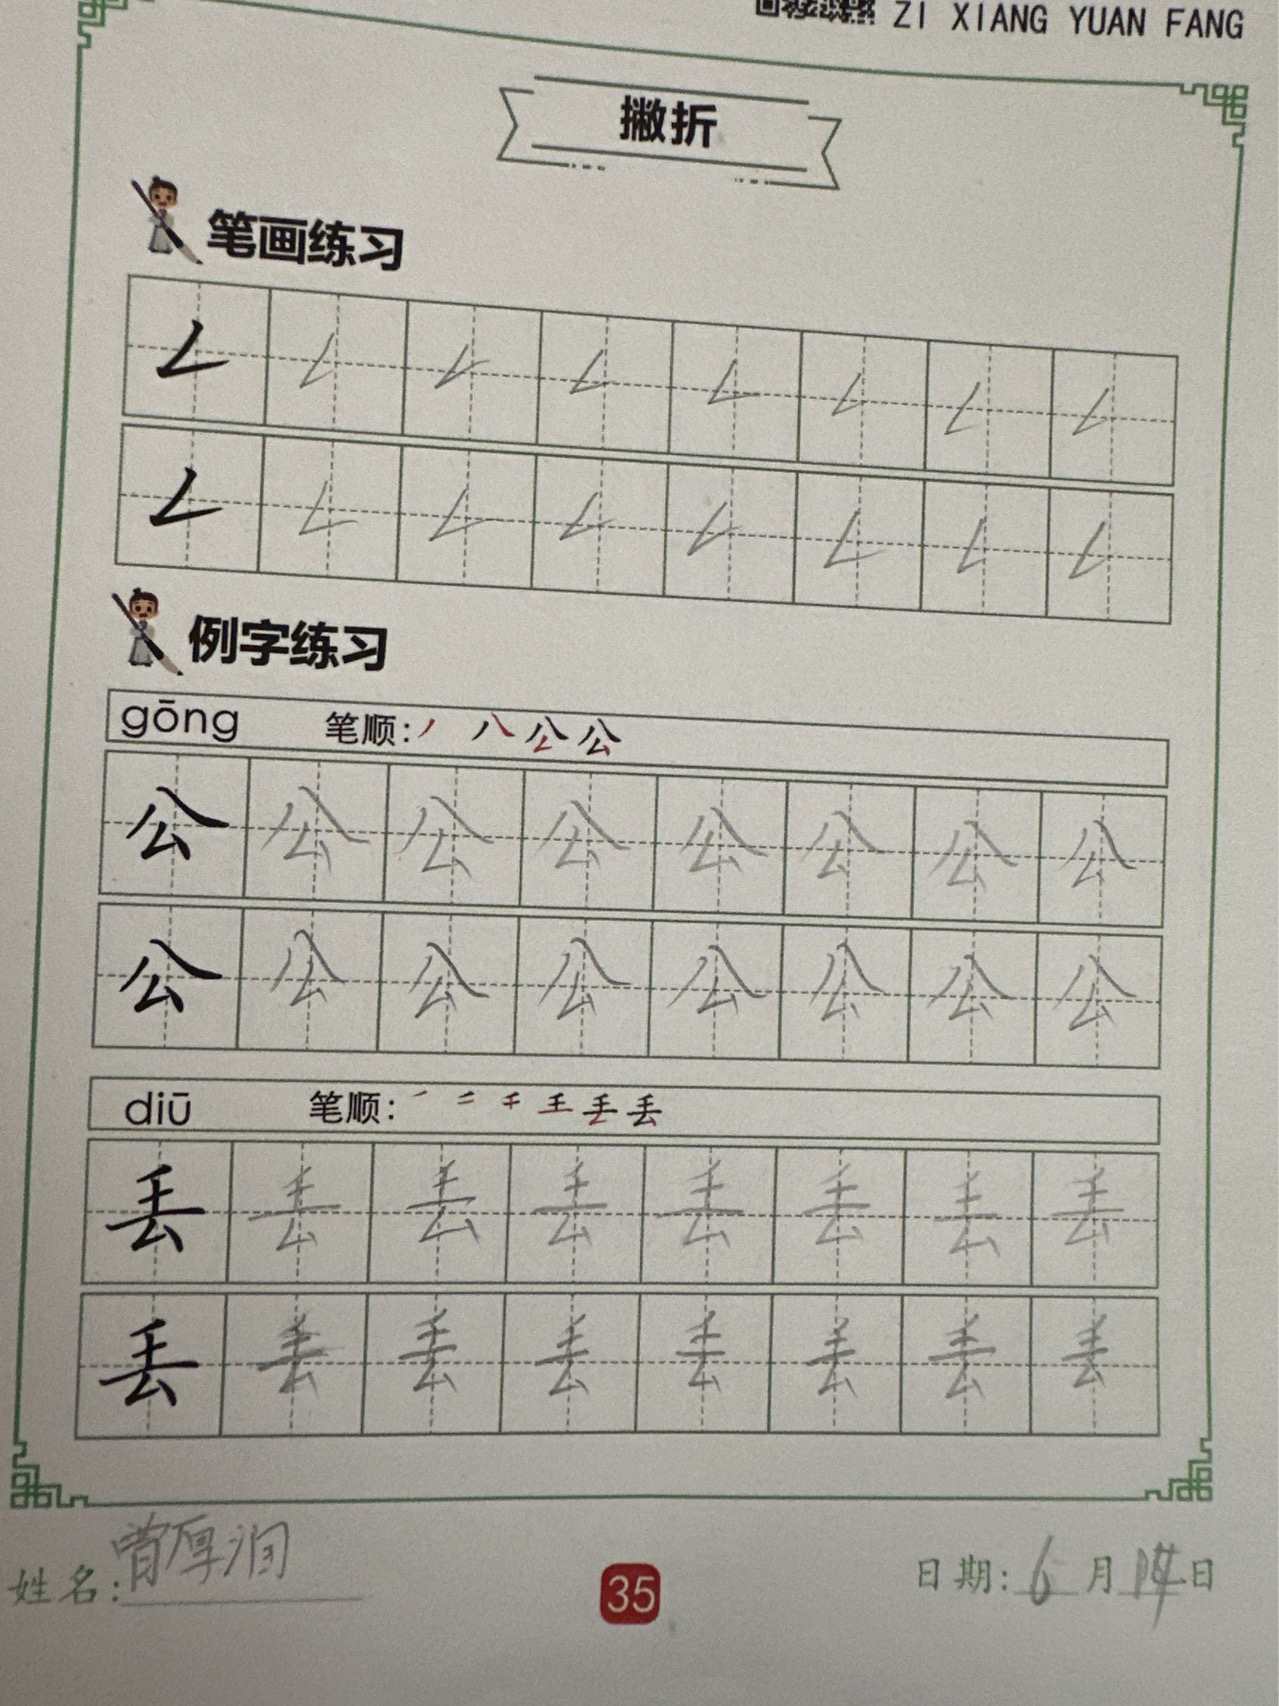 ZI XIANG YUAN FANG
撇折
笔画练习
例字练习
gōng 笔顺: 丿 八 公 公
公 公 公 公 公 公 公 公
公 公 公 公 公 公 公 公
diū 笔顺: 丢
丢 丢 丢 丢 丢 丢 丢 丢
丢 丢 丢 丢 丢 丢 丢 丢
姓名: 曾厚润
35
日期: 6月14日